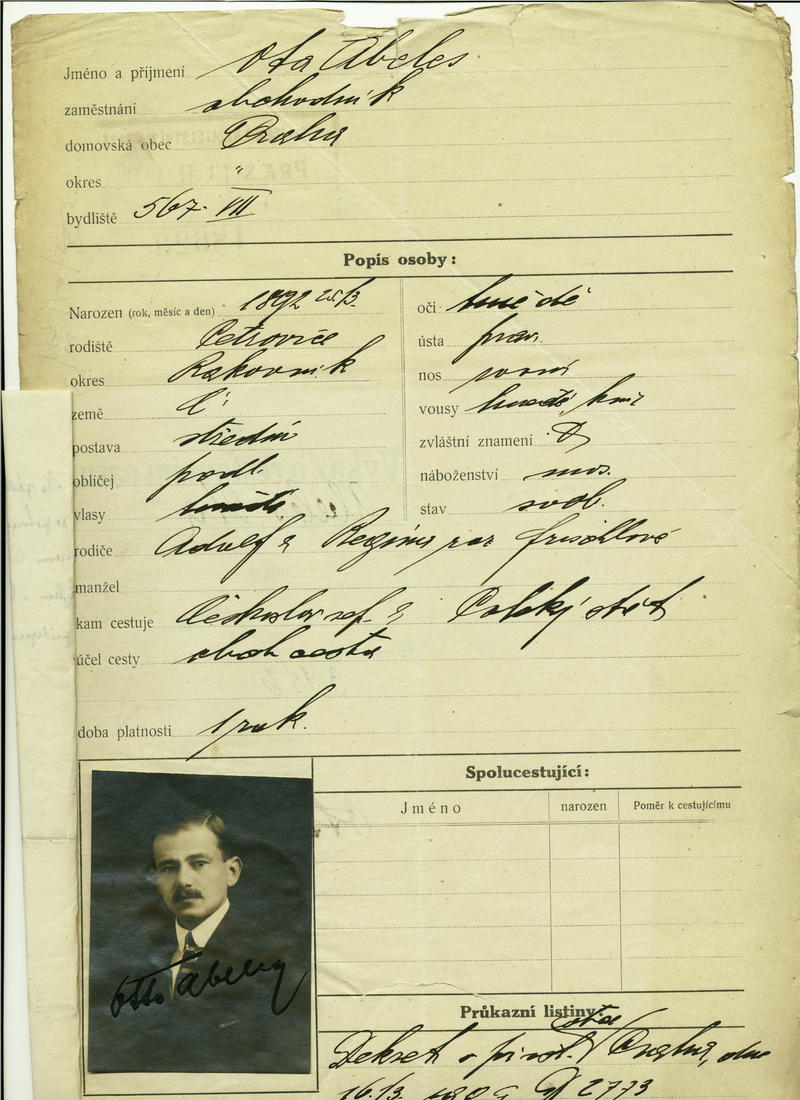 Jméno a příjmení Ota Abeles
zaměstnání obchodník
domovská obec Praha
okres "
bydliště 567. VII
Popis osoby:
Narozen (rok, měsíc a den) 1892 25/3.
rodiště Petrovice
okres Rakovník
země Č:
postava střední
obličej podl.
vlasy hnědé
oči hnědé
ústa prav.
nos rovný
vousy hnědé, knír
zvláštní znamení
náboženství mos.
stav svob.
rodiče Adolf a Regina roz
manžel
kam cestuje a Polský stát
účel cesty obch cesta
doba platnosti 1 rok.
Spolucestující:
Jméno narozen Poměr k cestujícímu
Otto Abeles
Průkazní listiny:
Dekret o Praha, dne
2773